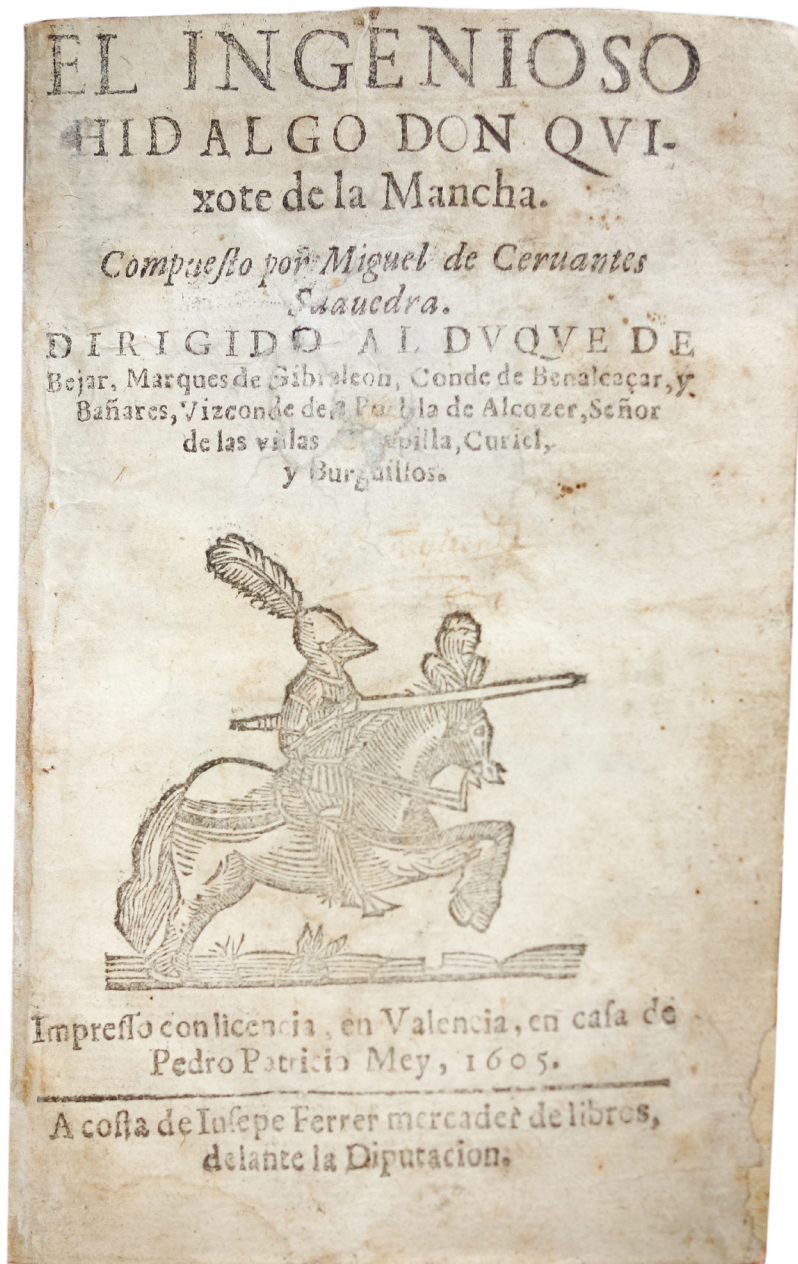 EL INGENIOSO
HIDALGO DON QVI-
xote de la Mancha.
Compuesto por Miguel de Ceruantes
Saauedra.
DIRIGIDO AL DVQVE DE
Bejar, Marques de Gibraleon, Conde de Benalcaçar, y
Bañares, Vizconde de la Puebla de Alcozer, Señor
de las villas de Capilla, Curiel,
y Burguillos.
Impresso con licencia, en Valencia, en casa de
Pedro Patricio Mey, 1605.
A costa de Iusepe Ferrer mercader de libros,
delante la Diputacion.